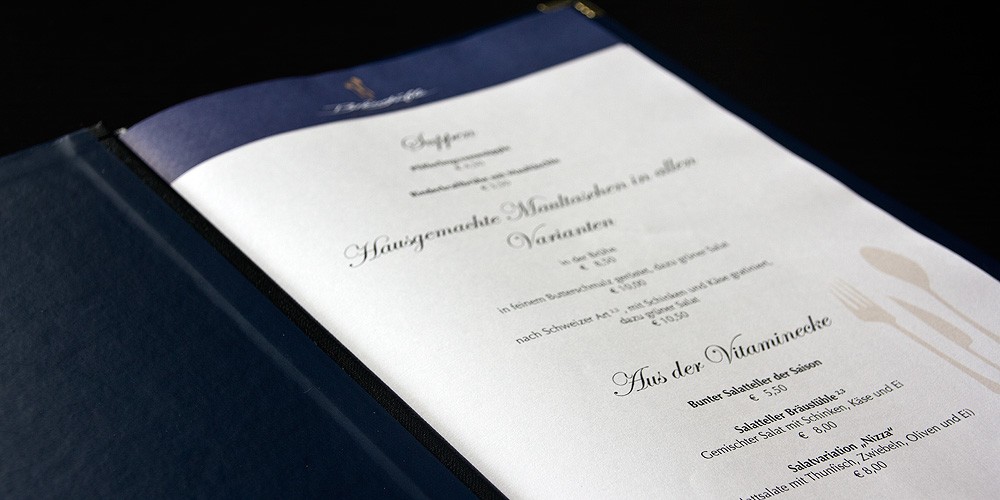 Suppen
Hausgemachte Maultaschen in allen
Varianten
in der Brühe
€ 8,50
in feinem Butterschmalz geröstet, dazu grüner Salat
€ 10,00
nach Schweizer Art ²·³ , mit Schinken und Käse gratiniert,
dazu grüner Salat
€ 10,50
Aus der Vitaminecke
Bunter Salatteller der Saison
€ 5,50
Salatteller Bräustüble ²·³
Gemischter Salat mit Schinken, Käse und Ei
€ 8,00
Salatvariation „Nizza“
mit Thunfisch, Zwiebeln, Oliven und Ei)
€ 8,00